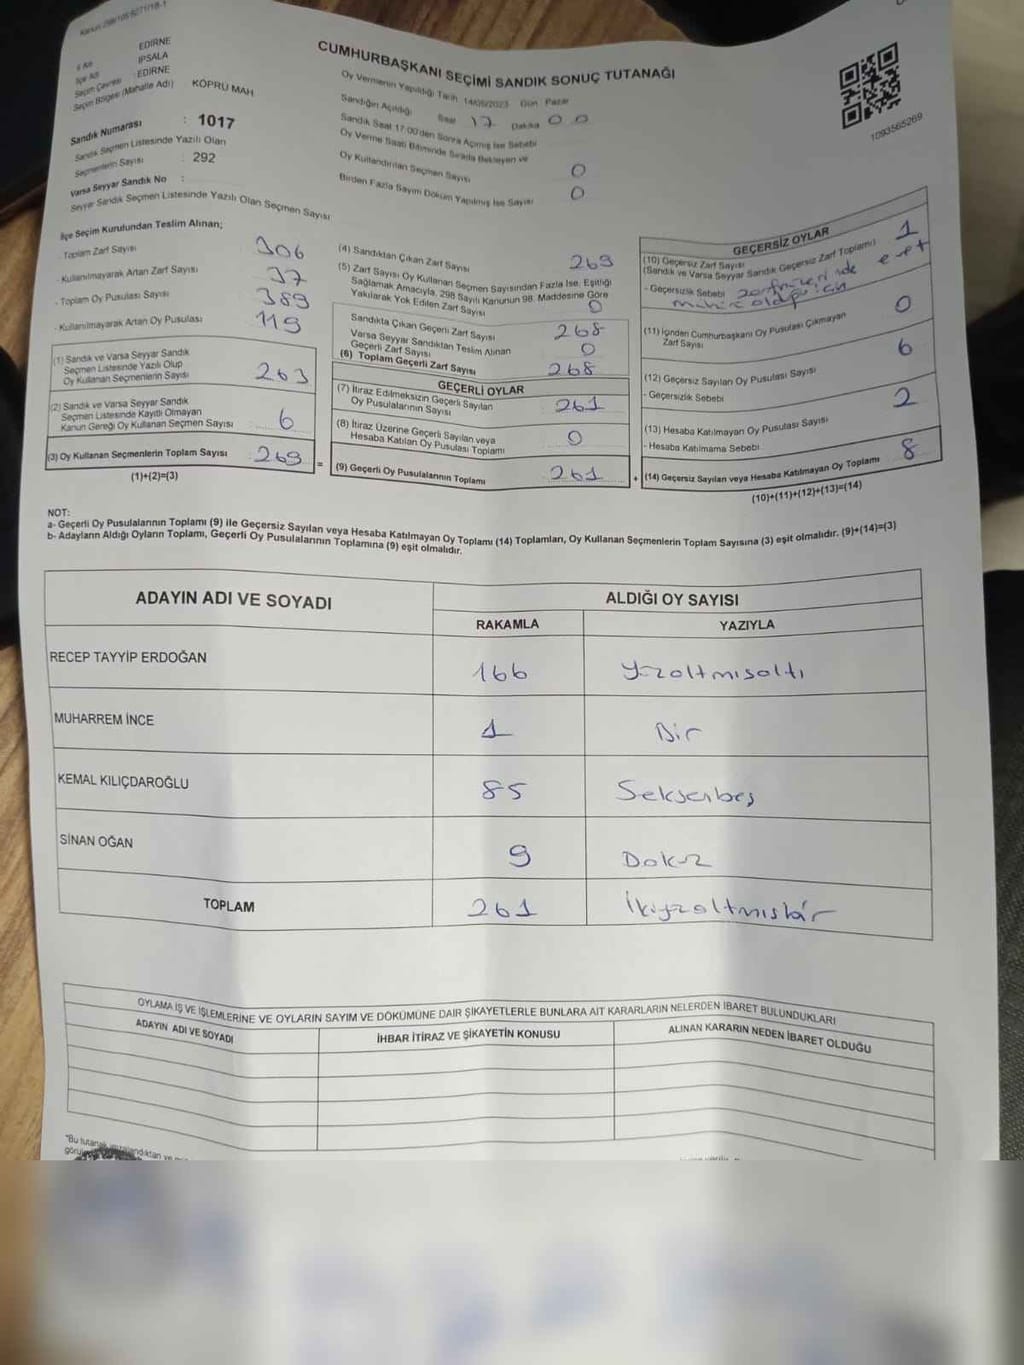 Kanun:298/105 5271/18-1
İl Adı EDİRNE
İlçe Adı İPSALA
Seçim Çevresi : EDİRNE
Seçim Bölgesi (Mahalle Adı) KÖPRÜ MAH
Sandık Numarası : 1017
Sandık Seçmen Listesinde Yazılı Olan
Seçmenlerin Sayısı : 292
Varsa Seyyar Sandık No :
Seyyar Sandık Seçmen Listesinde Yazılı Olan Seçmen Sayısı
CUMHURBAŞKANI SEÇİMİ SANDIK SONUÇ TUTANAĞI
Oy Vermenin Yapıldığı Tarih 14/05/2023 Gün Pazar
Sandığın Açıldığı Saat 17 Dakika 00
Sandık Saat 17:00'den Sonra Açılmış İse Sebebi
Oy Verme Saati Bitiminde Sırada Bekleyen ve
Oy Kullandırılan Seçmen Sayısı 0
Birden Fazla Sayım Döküm Yapılmış İse Sayısı 0
1093565269
İlçe Seçim Kurulundan Teslim Alınan;
- Toplam Zarf Sayısı 306
- Kullanılmayarak Artan Zarf Sayısı 37
- Toplam Oy Pusulası Sayısı 389
- Kullanılmayarak Artan Oy Pusulası 119
(1) Sandık ve Varsa Seyyar Sandık
Seçmen Listesinde Yazılı Olup
Oy Kullanan Seçmenlerin Sayısı 263
(2) Sandık ve Varsa Seyyar Sandık
Seçmen Listesinde Kayıtlı Olmayan
Kanun Gereği Oy Kullanan Seçmen Sayısı 6
(3) Oy Kullanan Seçmenlerin Toplam Sayısı 269
(1)+(2)=(3)
(4) Sandıktan Çıkan Zarf Sayısı 269
(5) Zarf Sayısı Oy Kullanan Seçmen Sayısından Fazla İse, Eşitliği
Sağlamak Amacıyla, 298 Sayılı Kanunun 98. Maddesine Göre
Yakılarak Yok Edilen Zarf Sayısı 0
Sandıkta Çıkan Geçerli Zarf Sayısı 268
Varsa Seyyar Sandıktan Teslim Alınan
Geçerli Zarf Sayısı 0
(6) Toplam Geçerli Zarf Sayısı 268
GEÇERLİ OYLAR
(7) İtiraz Edilmeksizin Geçerli Sayılan
Oy Pusulalarının Sayısı 261
(8) İtiraz Üzerine Geçerli Sayılan veya
Hesaba Katılan Oy Pusulası Toplamı 0
= (9) Geçerli Oy Pusulalarının Toplamı 261
GEÇERSİZ OYLAR
(10) Geçersiz Zarf Sayısı 1
(Sandık ve Varsa Seyyar Sandık Geçersiz Zarf Toplamı)
- Geçersizlik Sebebi zarfın üzerinde evet
mührü olduğu için
(11) İçinden Cumhurbaşkanı Oy Pusulası Çıkmayan
Zarf Sayısı 0
(12) Geçersiz Sayılan Oy Pusulası Sayısı 6
- Geçersizlik Sebebi
(13) Hesaba Katılmayan Oy Pusulası Sayısı 2
- Hesaba Katılmama Sebebi
+ (14) Geçersiz Sayılan veya Hesaba Katılmayan Oy Toplamı 8
(10)+(11)+(12)+(13)=(14)
NOT:
a- Geçerli Oy Pusulalarının Toplamı (9) ile Geçersiz Sayılan veya Hesaba Katılmayan Oy Toplamı (14) Toplamları, Oy Kullanan Seçmenlerin Toplam Sayısına (3) eşit olmalıdır. (9)+(14)=(3)
b- Adayların Aldığı Oyların Toplamı, Geçerli Oy Pusulalarının Toplamına (9) eşit olmalıdır.
ADAYIN ADI VE SOYADI ALDIĞI OY SAYISI
RAKAMLA YAZIYLA
RECEP TAYYİP ERDOĞAN 166 Yüzaltmışaltı
MUHARREM İNCE 1 Bir
KEMAL KILIÇDAROĞLU 85 Seksenbeş
SİNAN OĞAN 9 Dokuz
TOPLAM 261 İkiyüzaltmışbir
OYLAMA İŞ VE İŞLEMLERİNE VE OYLARIN SAYIM VE DÖKÜMÜNE DAİR ŞİKAYETLERLE BUNLARA AİT KARARLARIN NELERDEN İBARET BULUNDUKLARI
ADAYIN ADI VE SOYADI İHBAR İTİRAZ VE ŞİKAYETİN KONUSU ALINAN KARARIN NEDEN İBARET OLDUĞU
"Bu tutanak